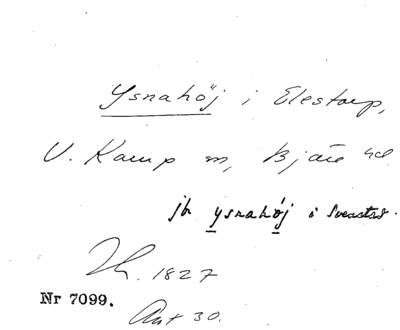 Ysnahöj i Elestorp,
V. Karup sn, Bjäre hd
jfr ysnahöj i Svenstad.
Lh. 1827
Nr 7099.
Akt 30.